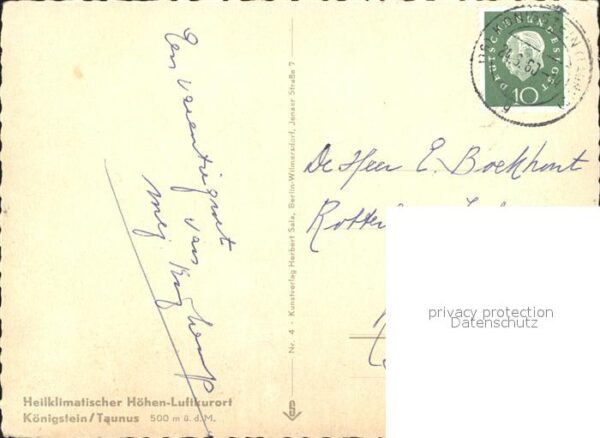 Een vacantiegroet
van
mej.
DEUTSCHE BUNDESPOST
10
De Heer E. Boekhout
Nr. 4 · Kunstverlag Herbert Sala, Berlin-Wilmersdorf, Jenaer Straße 7
privacy protection
Datenschutz
Heilklimatischer Höhen-Luftkurort
Königstein/Taunus 500 m ü. d. M.